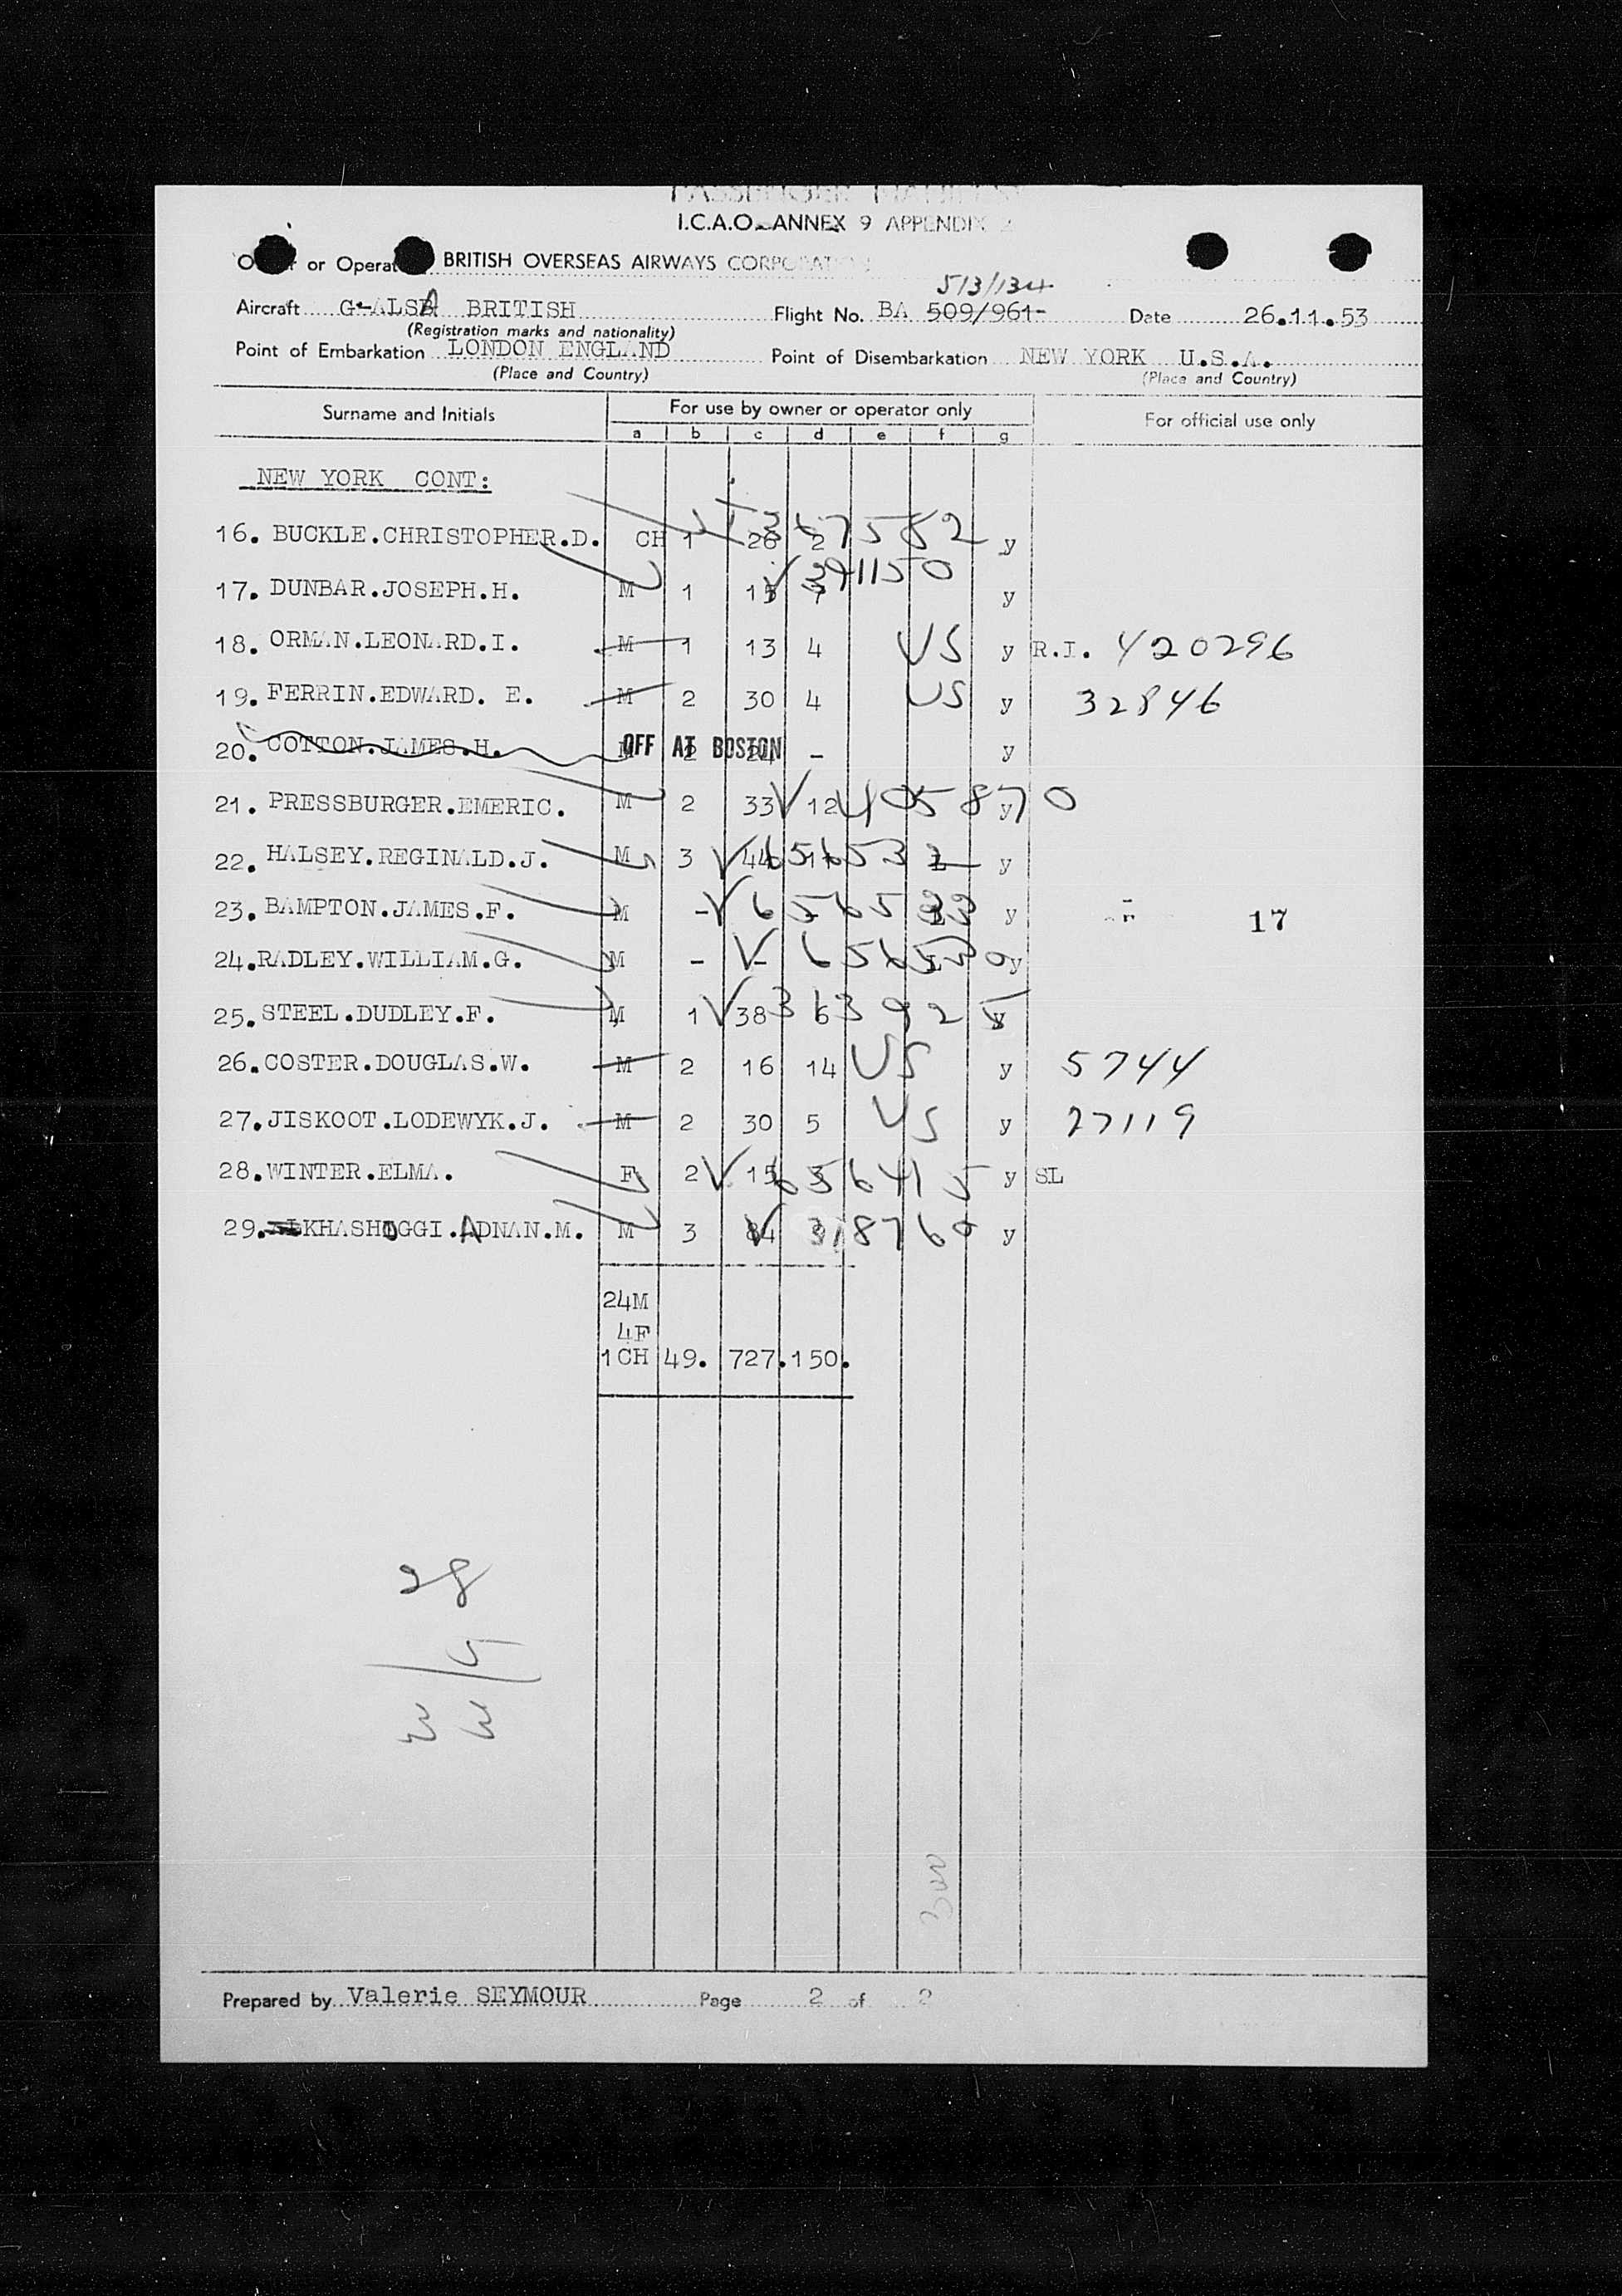 PASSENGER MANIFEST
I.C.A.O. ANNEX 9 APPENDIX 2
or Operat BRITISH OVERSEAS AIRWAYS CORPORATION
513/134
Aircraft G-ALSA BRITISH Flight No. BA 509/961- Date 26.11.53
(Registration marks and nationality)
Point of Embarkation LONDON ENGLAND Point of Disembarkation NEW YORK U.S.A.
(Place and Country) (Place and Country)
Surname and Initials For use by owner or operator only For official use only
a b c d e f g
NEW YORK CONT:
16. BUCKLE.CHRISTOPHER.D. CH 1 26 2 7582 y
17. DUNBAR.JOSEPH.H. M 1 15 7 391150 y
18. ORMAN.LEONARD.I. M 1 13 4 US y R.I. 420296
19. FERRIN.EDWARD. E. M 2 30 4 US y 32846
20. COTTON.JAMES.H. M 2 OFF AT BOSTON - y
21. PRESSBURGER.EMERIC. M 2 33 12 405870 y
22. HALSEY.REGINALD.J. M 3 44 y
23. BAMPTON.JAMES.F. M - y 17
24. RADLEY.WILLIAM.G. M - - y
25. STEEL.DUDLEY.F. M 1 38 6 363925 y
26. COSTER.DOUGLAS.W. M 2 16 14 US y 5744
27. JISKOOT.LODEWYK.J. M 2 30 5 US y 27119
28. WINTER.ELMA. F 2 15 3 656415 y SL
29. KHASHOGGI.ADNAN.M. M 3 84 318760 y
24M
4F
1CH 49. 727. 150.
28
5
33
300
Prepared by Valerie SEYMOUR Page 2 of 2